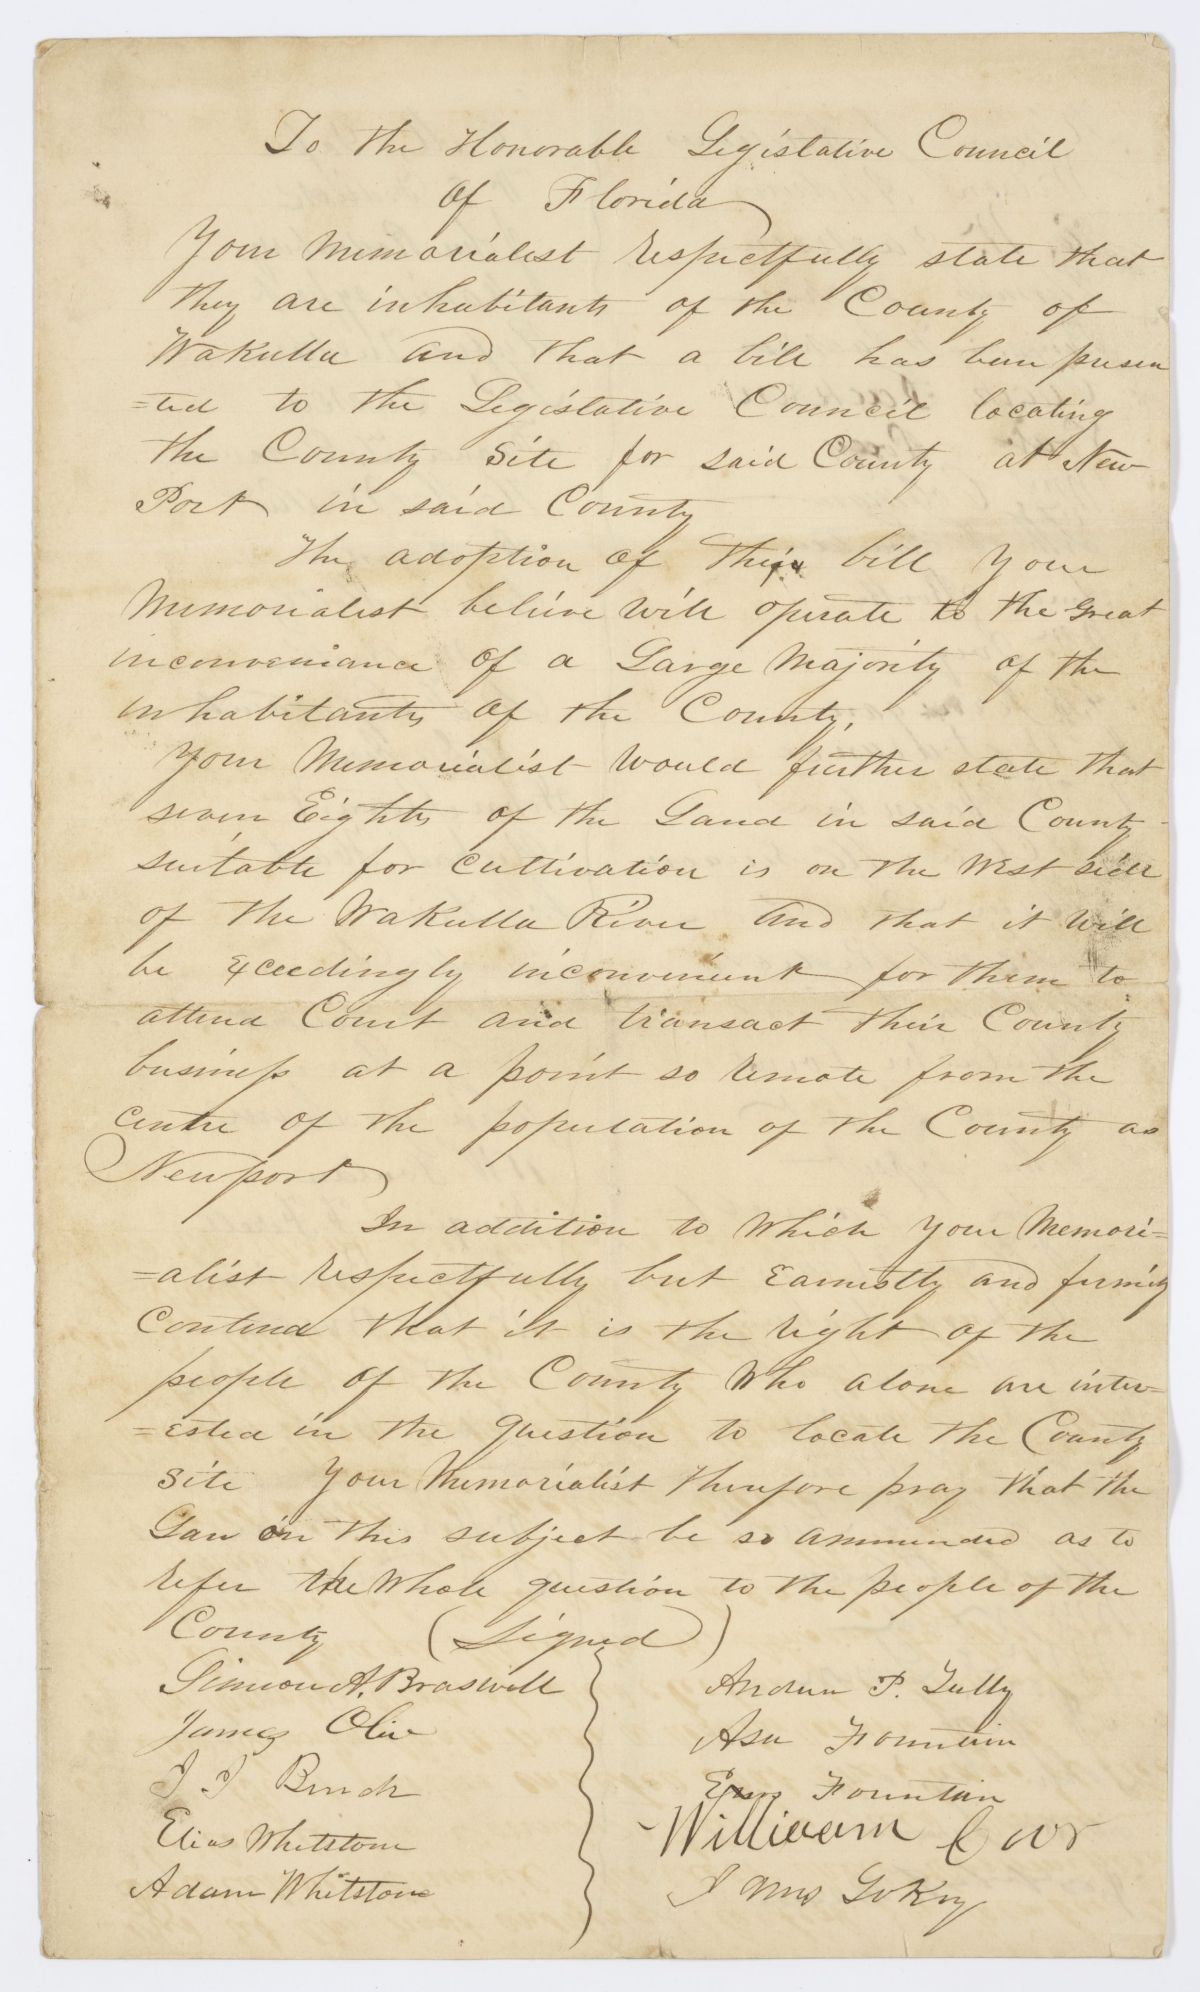 To the Honorable Legislative Council
of Florida
Your Memorialist respectfully state that
they are inhabitants of the County of
Wakulla and that a bill has been presen
=ted to the Legislative Council locating
the County Site for said County at New
Port in said County
The adoption of this bill your
Memorialist believe will operate to the Great
inconveniance of a Large Majority of the
inhabitants of the County.
Your Memorialist would further state that
seven Eights of the Land in said County
suitable for cultivation is on the West side
of the Wakulla River and that it will
be exceedingly inconvenient for them to
attend Court and transact their County
business at a point so remote from the
centre of the population of the County as
Newport
In addition to which your Memori=
=alist respectfully but earnestly and firmly
contend that it is the right of the
people of the County who alone are inter=
=ested in the question to locate the County
Site Your Memorialist therefore pray that the
Law on this subject be so ammended as to
refer the whole question to the people of the
County (Signed)
Simeon A. Braswell
James
J J
Elias Whitstone
Adam Whitstone
Andrew P. Tully
Asa Fountain
Fountain
William